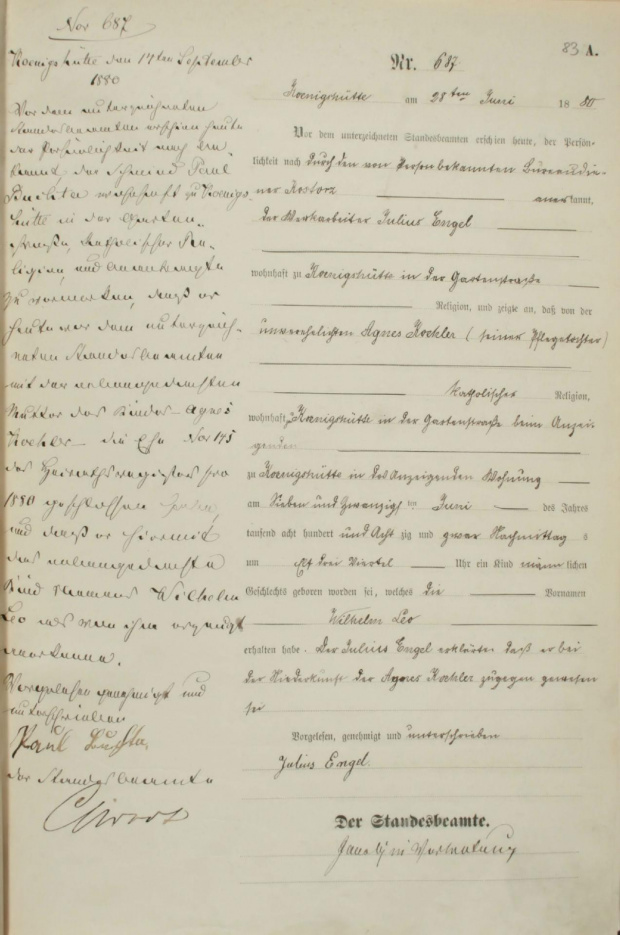 Nor 687
Koenigshütte den 17ten September
1880
Vor dem unterzeichneten
Standesbeamten erschien heute
der Persönlichkeit nach be-
kannt, der Schmied Paul
wohnhaft zu Koenigs-
hütte in der Garten-
straße, katholischer Re-
ligion, und beantragte
zu vermerken, daß er
heute vor dem unterzeich-
neten Standesbeamten
mit der nebengedachten
Mutter des Kindes Agnes
Koehler die Ehe Nor 175
des Heirathsregisters pro
1880 geschlossen
und daß er hiermit
das nebengedachte
Kind Namens Wilhelm
Leo als von ihm erzeugt
anerkenne.
Vorgelesen genehmigt und
unterschrieben
Paul
der Standesbeamte
83 A.
Nr. 687
Koenigshütte am 28ten Juni 1880
Vor dem unterzeichneten Standesbeamten erschien heute, der Persön-
lichkeit nach durch den von Person bekannten Bureaudie-
ner Kostorz anerkannt,
der Werkarbeiter Julius Engel
wohnhaft zu Koenigshütte in der Gartenstraße
Religion, und zeigte an, daß von der
unverehelichten Agnes Koehler (seiner Pflegetochter)
katholischer Religion,
wohnhaft zu Koenigshütte in der Gartenstraße beim Anzei-
genden
zu Koenigshütte in des Anzeigenden Wohnung
am Sieben und Zwanzigsten Juni des Jahres
tausend acht hundert und Acht zig und zwar Nachmittags
um drei Viertel Uhr ein Kind männlichen
Geschlechts geboren worden sei, welches die Vornamen
Wilhelm Leo
erhalten habe. Der Julius Engel erklärte daß er bei
der Niederkunft der Agnes Koehler zugegen gewesen
sei
Vorgelesen, genehmigt und unterschrieben
Julius Engel.
Der Standesbeamte.
in Vertretung